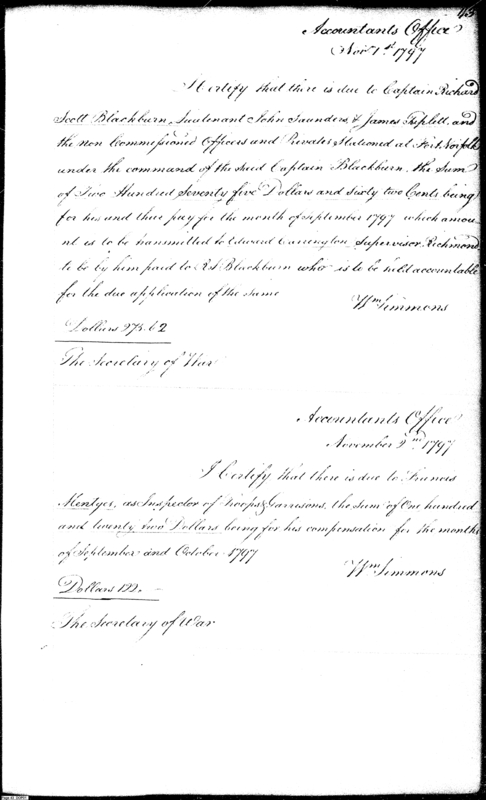 45
Accountants Office
Novr 1st 1797
I Certify that there is due to Captain Richard
Scott Blackburn, Lieutenant John Saunders, & James Triplett, and
the non Commissioned Officers and Privates Stationed at Fort Norfolk
under the command of the said Captain Blackburn, the Sum
of Two Hundred Seventy five Dollars and Sixty two Cents being
for his and their pay for the month of September 1797 which amou-
nt is to be transmitted to Edward Carrington Supervisor, Richmond,
to be by him paid to R.S. Blackburn who is to be held accountable
for the due application of the same
Wm Simmons
Dollars 275.62
The Secretary of War
Accountants Office
November 2nd 1797
I Certify that there is due to Francis
Mentges, as Inspector of Troops & Garrisons, the sum of One hundred
and twenty two Dollars being for his compensation for the months
of September and October 1797
Wm Simmons
Dollars 122.
The Secretary of War